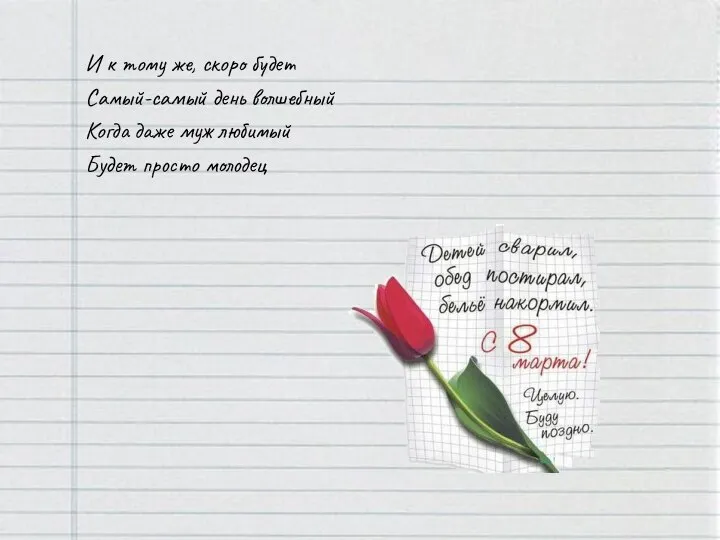 И к тому же, скоро будет
Самый-самый день волшебный
Когда даже муж любимый
Будет просто молодец
Детей сварил,
обед постирал,
бельё накормил.
С 8
марта!
Целую.
Буду
поздно.